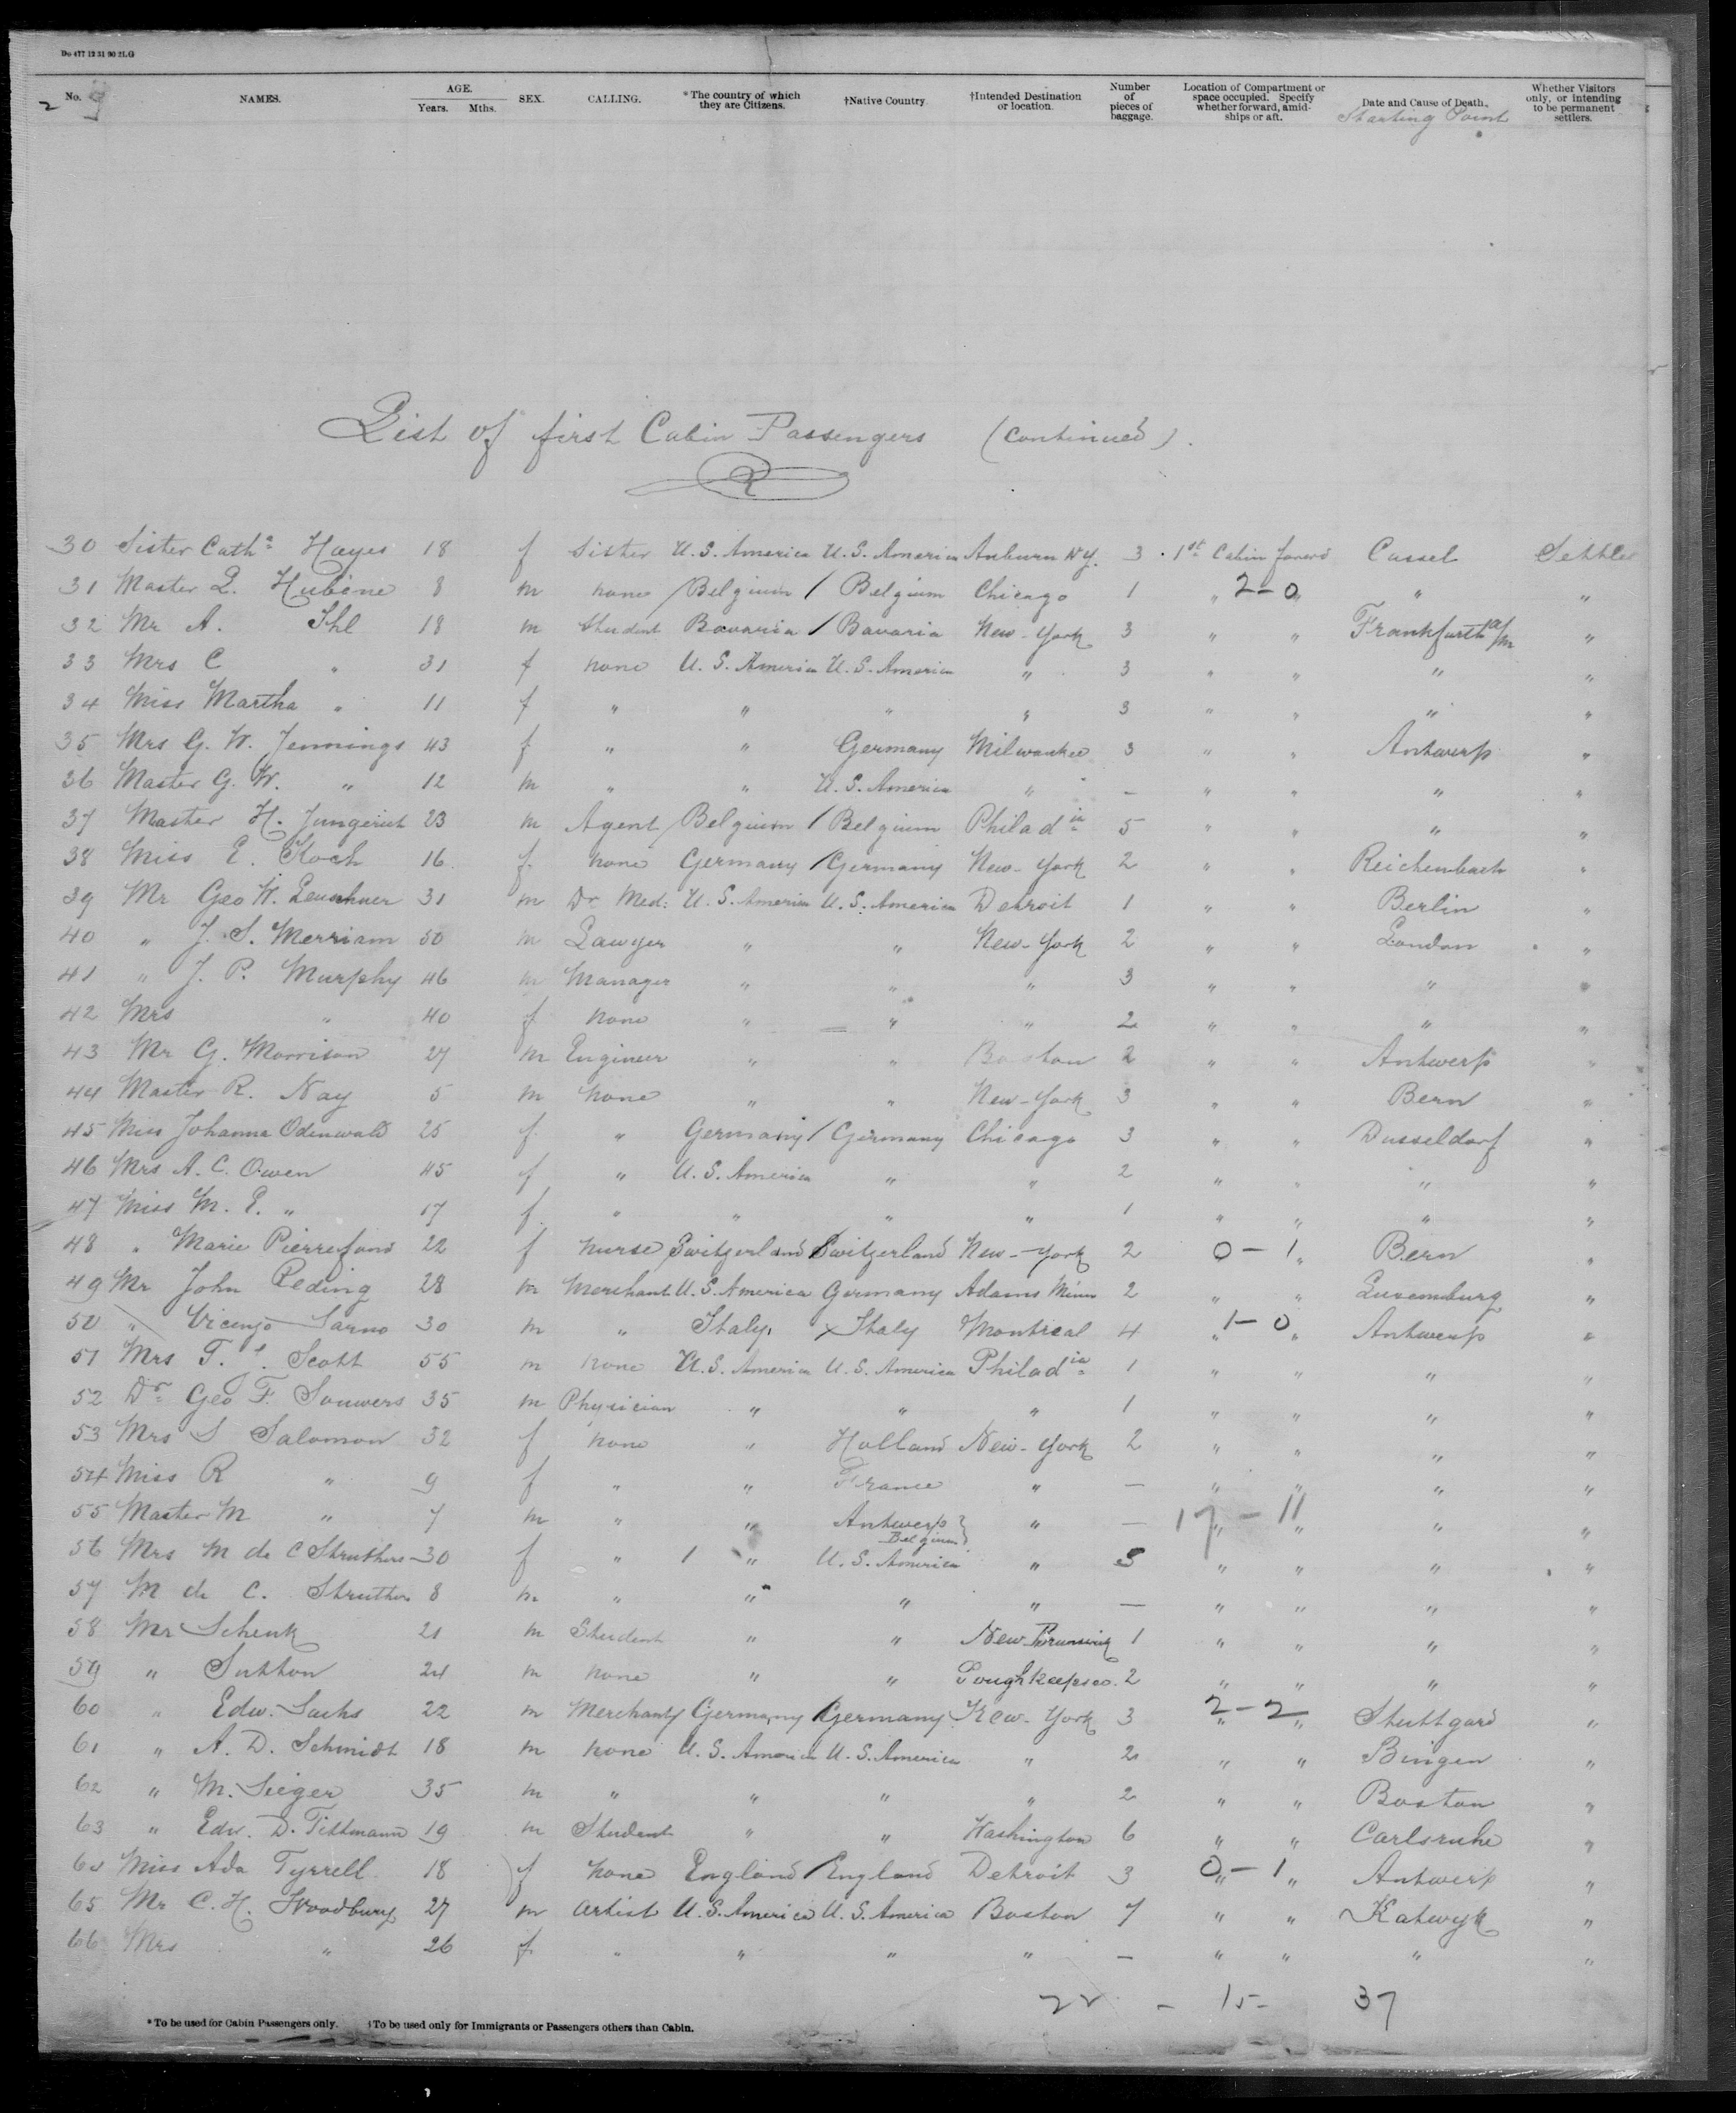 Do 477 12 31 90 2LG
No. NAMES. AGE. Years. Mths. SEX. CALLING. *The country of which they are Citizens. †Native Country. †Intended Destination or location. Number of pieces of baggage. Location of Compartment or space occupied. Specify whether forward, amidships or aft. Date and Cause of Death. Whether Visitors only, or intending to be permanent settlers.
Starting Point
List of first Cabin Passengers (continued).
30 Sister Cath.a Hayes 18 f Sister U.S. America U.S. America Auburn N.Y. 3 1st Cabin forwd Cassel Settler
31 Master L. Hubine 8 m none / Belgium / Belgium Chicago 1 " 2-0 " " "
32 Mr A. Ihl 18 m Student Bavaria / Bavaria New-York 3 " " Frankfurth a/m "
33 Mrs C " 31 f none U.S. America U.S. America " 3 " " " "
34 Miss Martha " 11 f " " " " 3 " " " "
35 Mrs G. W. Jennings 43 f " " Germany Milwaukee 3 " " Antwerp "
36 Master G. W. " 12 m " " U.S. America " – " " " "
37 Master H. Jungerich 23 m Agent / Belgium / Belgium Philadia 5 " " " "
38 Miss E. Koch 16 f. none Germany / Germany New-York 2 " " Reichenbach "
39 Mr Geo W. 31 m Dr Med: U.S. America U.S. America Detroit 1 " " Berlin "
40 " J. S. Merriam 50 m Lawyer " " New-York 2 " " London "
41 " J. P. Murphy 46 m Manager " " " 3 " " " "
42 Mrs " 40 f none " " " 2 " " " "
43 Mr G. Morrison 27 m Engineer " " Boston 2 " " Antwerp "
44 Master R. Nay 5 m none " " New-York 3 " " Bern "
45 Miss Johanna Odenwald 25 f. " Germany / Germany Chicago 3 " " Dusseldorf "
46 Mrs A. C. Owen 45 f " U.S. America " " 2 " " " "
47 Miss M. E. " 17 f. " " " " 1 " " " "
48 " Marie Pierrefond 22 f nurse Switzerland Switzerland New-York 2 0-1 " Bern "
49 Mr John Peding 28 m Merchant U.S. America Germany Adams Minn 2 " " Luxemburg "
50 " Vicenzo Sarno 30 m " Italy, x Italy Montreal 4 " 1-0 " Antwerp "
51 Mrs T. Scott 55 m none U.S. America U.S. America Philadia 1 " " " "
52 Dr Geo F. Souwers 35 m Physician " " " 1 " " " "
53 Mrs S Salomon 32 f none " Holland New-York 2 " " " "
54 Miss R " 9 f " " France " – " " " "
55 Master M " 7 m " " Antwerp Belgium } " – 17 " - 11 " " "
56 Mrs M de C Struthers 30 f " 1 " U.S. America " 5 " " " "
57 M de C. Struthers 8 m " " " " – " " " "
58 Mr Schenk 21 m Student " " New Brunswick 1 " " " "
59 " Sutton 24 m none " " Poughkeepsee. 2 " " " "
60 " Edw. Sachs 22 m Merchant / Germany / Germany New-York 3 " 2-2 " Stuttgard "
61 " A. D. Schmidt 18 m none U.S. America U.S. America " 2 " " Bingen "
62 " M. Sieger 35 m " " " " 2 " " Boston "
63 " Edw. D. Tittmann 19 m Student " " Washington 6 " " Carlsruhe "
64 Miss Ada Tyrrell 18 f none England / England Detroit 3 " 0-1 " Antwerp "
65 Mr C. H. Woodbury 27 m artist U.S. America U.S. America Boston 7 " " Katwyk "
66 Mrs " 26 f. " " " " – " " " "
22 - 15- 37
*To be used for Cabin Passengers only. †To be used only for Immigrants or Passengers others than Cabin.